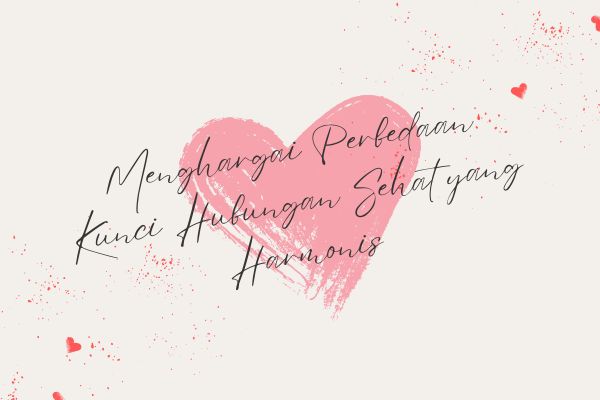 Menghargai Perbedaan
Kunci Hubungan Sehat yang
Harmonis